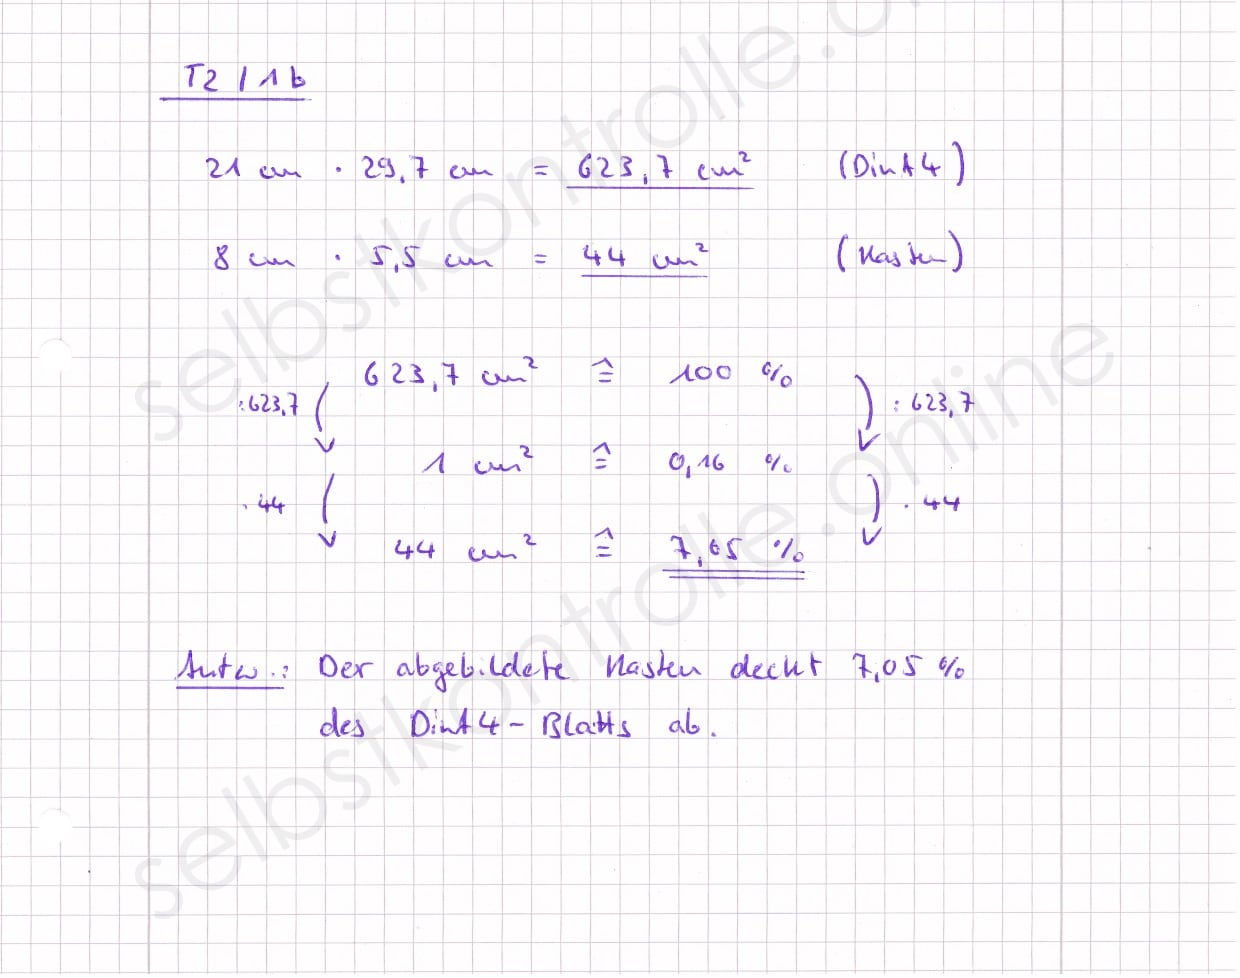 T2 / 1b
21 cm · 29,7 cm = 623,7 cm² (DinA4)
8 cm · 5,5 cm = 44 cm² (Kasten)
623,7 cm² ≙ 100 %
:623,7 : 623,7
1 cm² ≙ 0,16 %
· 44 · 44
44 cm² ≙ 7,05 %
Antw.: Der abgebildete Kasten deckt 7,05 %
des DinA4-Blatts ab.
selbstkontrolle.online
selbstkontrolle.online